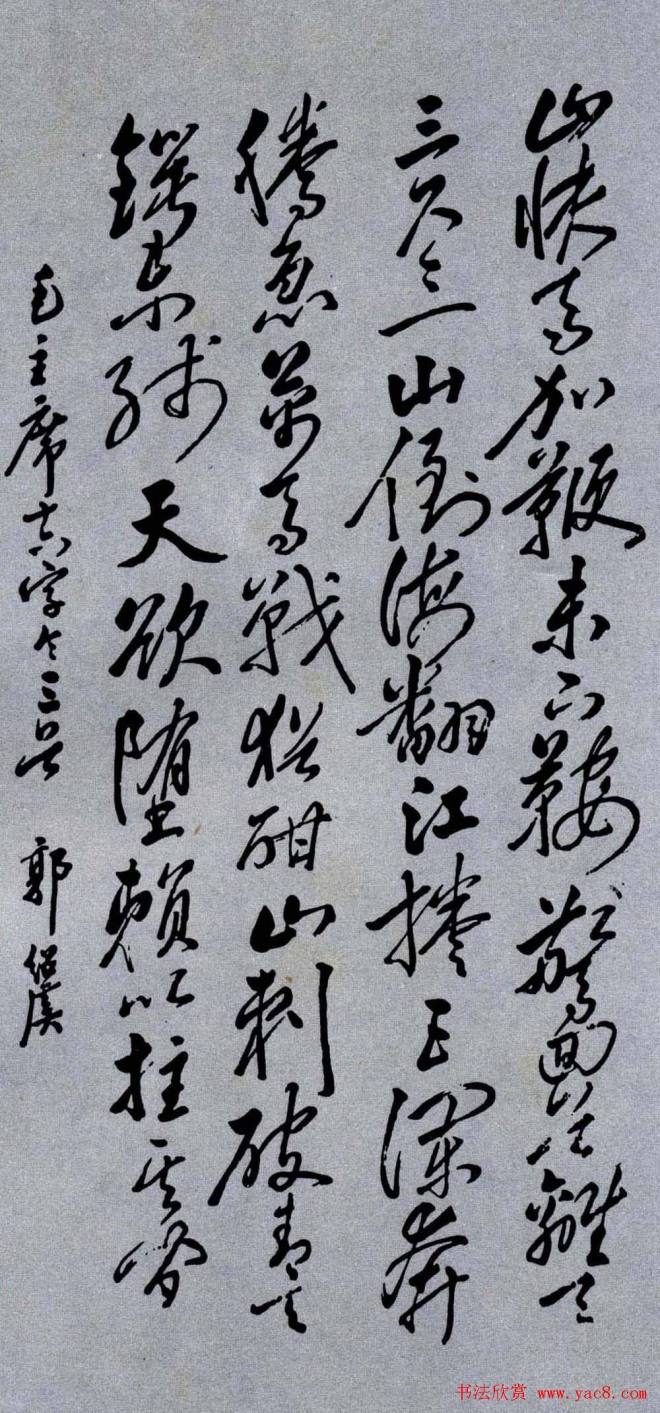 山快馬加鞭未下鞍驚回首離天
三尺三山倒海翻江捲巨瀾奔
騰急萬馬戰猶酣山刺破青天
鍔未殘天欲墮賴以拄其間
毛主席十六字令三首 郭紹虞
书法欣赏 www.yac8.com